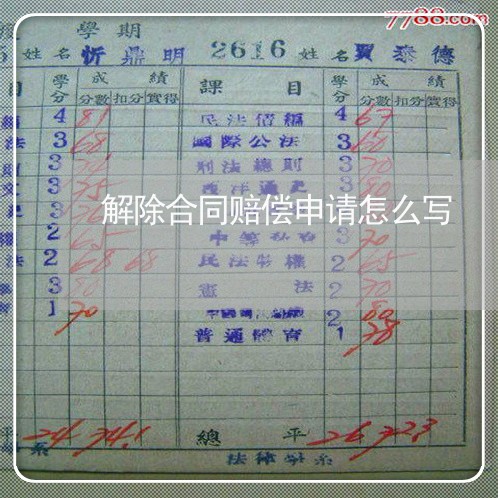 7788.com
度 學期
5 姓名 忻鼎明 2616 姓名 賈泰德
目 學分 成績 課目 學分 成績
分數 扣分 實得 分數 扣分 實得
4 81 民法債編 4 67
法 3 68 國際公法 3 60
3 刑法總則 3 70
3 75 西洋通史 3 80
解除合同赔偿申请怎么写
2 65 3 70
法 2 68 68 民法物權 2 65
3 80 憲法 2 70
1 70 2 80
普通體育 1 78
平 24 74.1 總平 26 72.3
系 法律學系